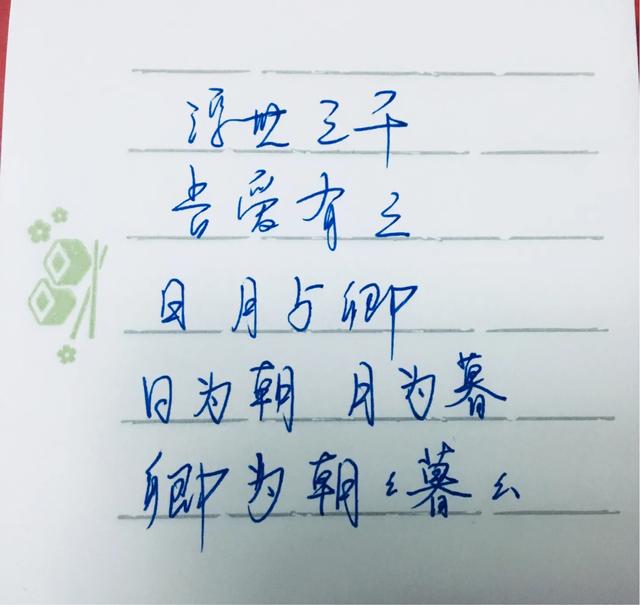 浮世三千
吾爱有三
日月与卿
日为朝 月为暮
卿为朝朝暮暮